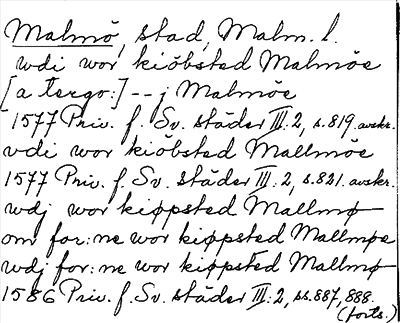 Malmö, stad, Malm. l.
wdi wor kiöbsted Malmöe
[a tergo:] -- j Malmöe
1577 Priv. f. Sv. städer III:2, s. 819. avskr.
vdi wor kiöbsted Mallmöe
1577 Priv. f. Sv. städer III:2, s. 821. avskr.
wdj wor kiøpsted Mallmø
om for:ne wor kiøpsted Mallmøe
wdj for:ne wor kiøpsted Mallmø
1586 Priv. f. Sv. städer III:2, ss. 887, 888.
(forts.)